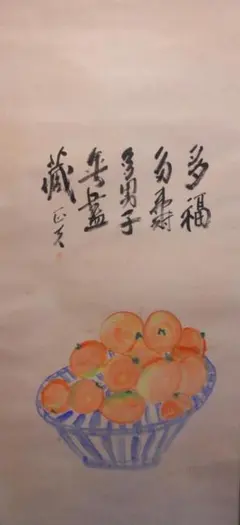 多福
多寿
多男子
無盡
藏